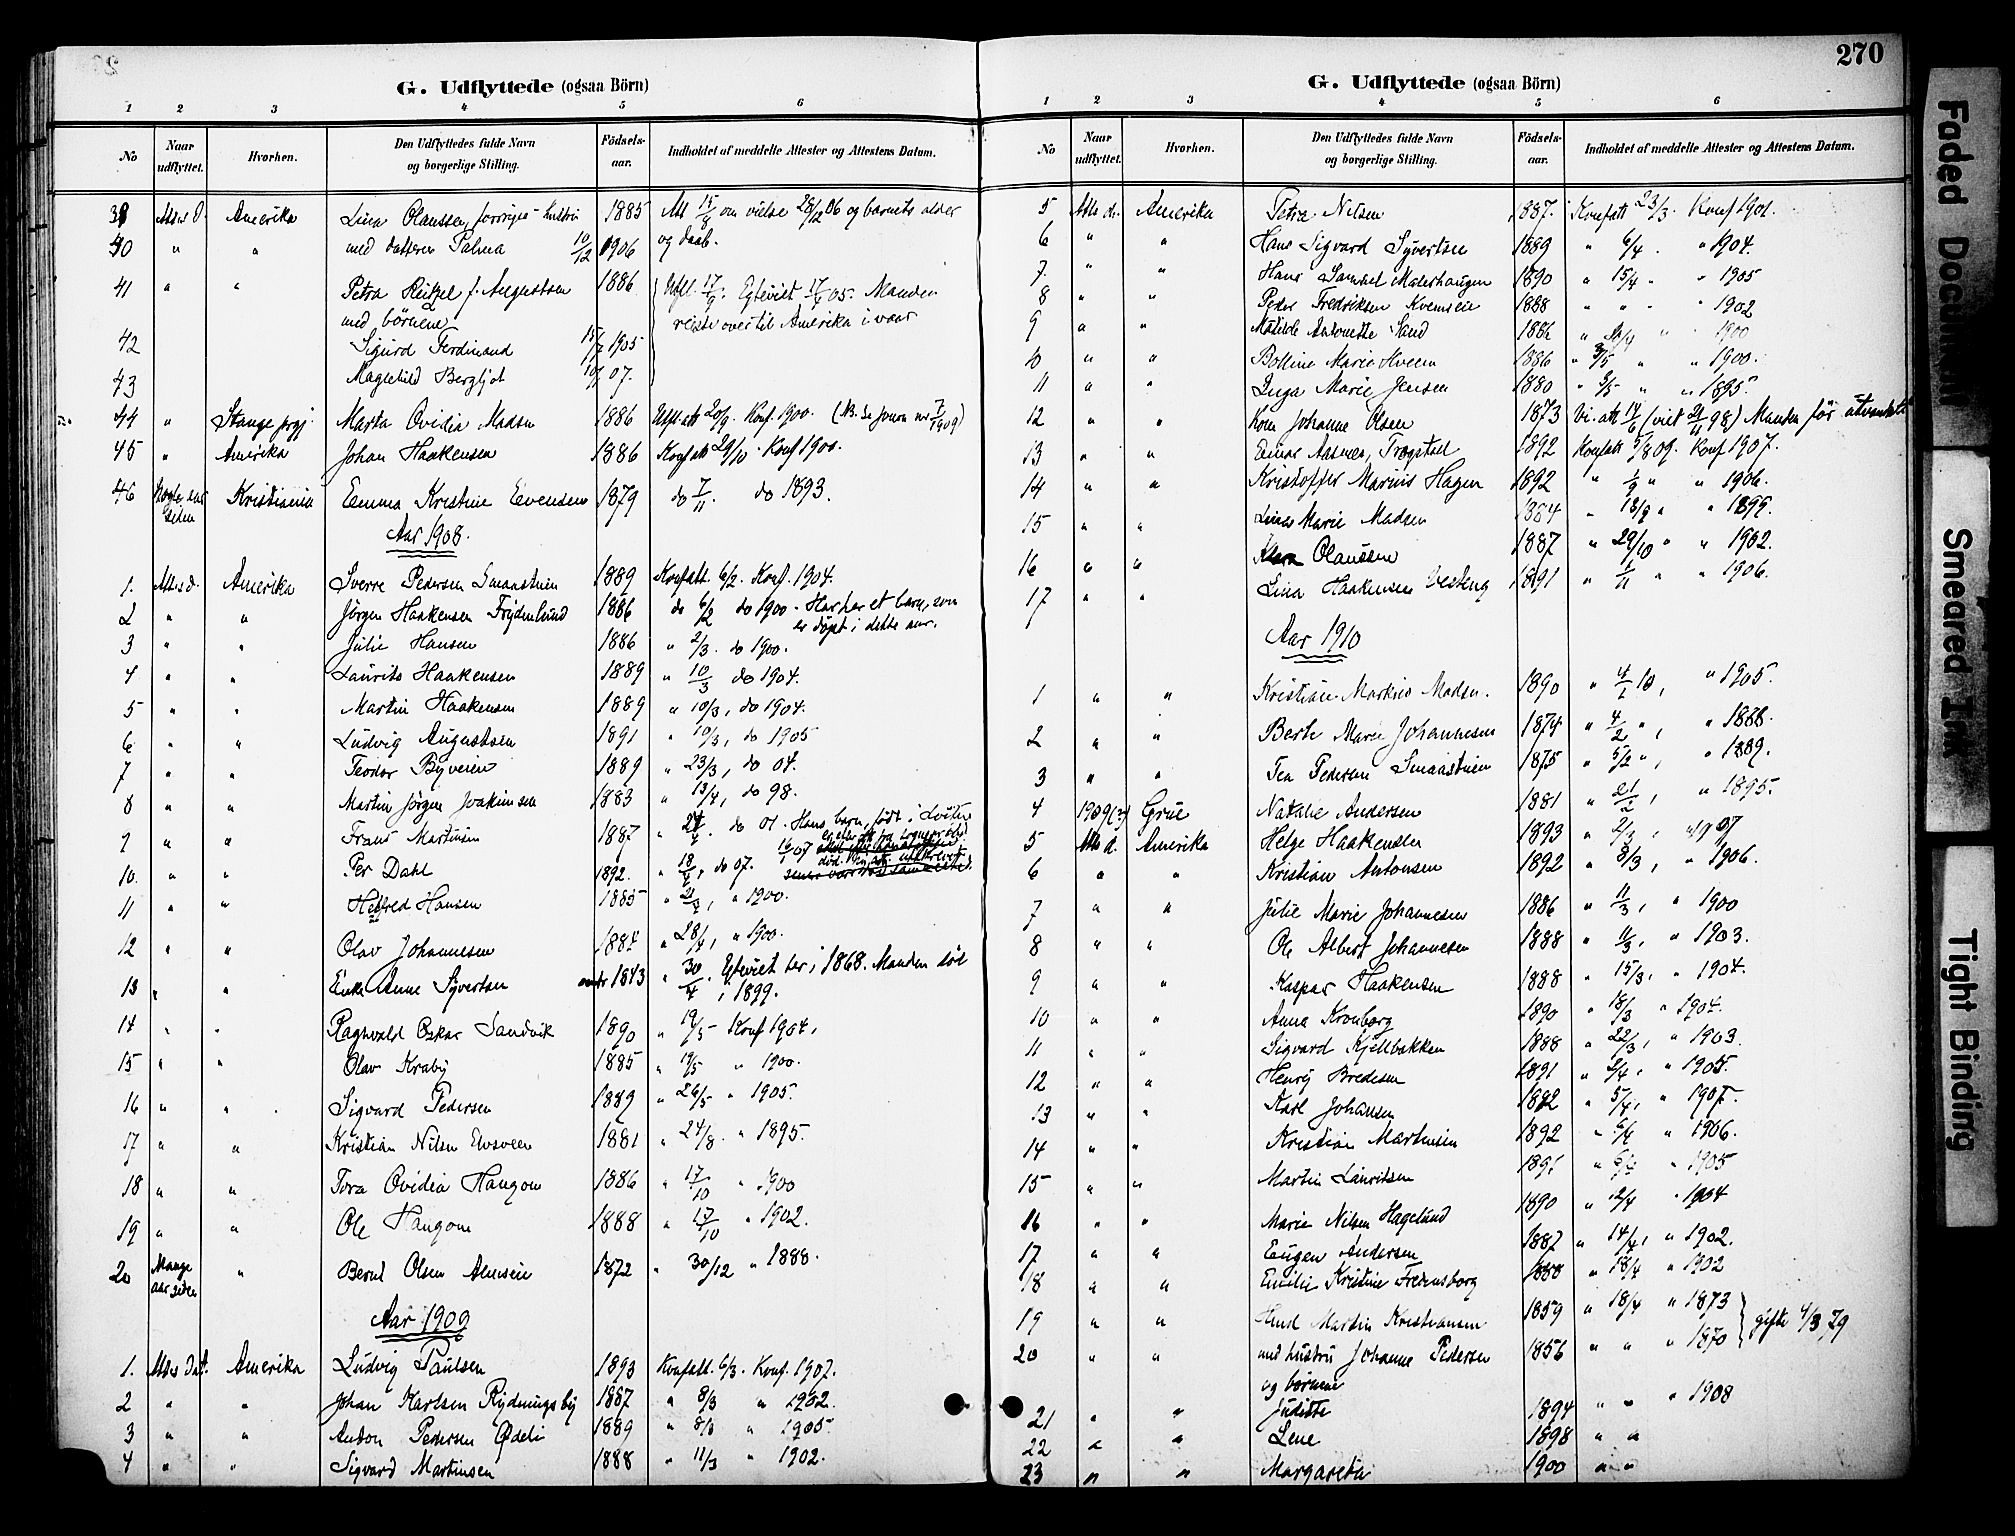 270
G. Udflyttede (ogsaa Börn)
1 2 3 4 5 6
No Naar udflyttet. Hvorhen. Den Udflyttedes fulde Navn og borgerlige Stilling. Födselsaar. Indholdet af meddelte Attester og Attestens Datum.
Amerika Lina Olaussen, forriges hustru 1885 Att 15/9 om vielse 28/2 06 og barnets alder
40 " " med datteren Palma 10/12 1906 og daab.
41 " " Petra f. Augustsen 1886 Egteviet Manden
med børnene reiste over til Amerika i vaar
42 Sigurd Ferdinand 15/7 1905
43 Magnhild Bergljot 07.
44 " Stange prgj. Marta Ovidia Madsen 1886 Utfl.att 20/9. Konf. 1900. (NB. Se journ nr 7/1909)
45 " Amerika Johan Haakensen 1886 Konfatt 29/10. Konf 1900.
46 Nogle aar siden Kristiania Emma Kristine Evensen 1879 do 7/11. do 1893.
Aar 1908.
1. Attes d. Amerika Sverre Pedersen Smaastuen 1889 Konfatt. 6/2. Konf. 1904.
2 " " Jörgen Haakensen Frydenlund 1886 do 6/2 do 1900. Har her et barn, som
er døpt i dette aar.
3 " " Julie Hansen 1886 " 2/3. do 1900.
4 " " Laurits Haakensen 1889 " 10/3 do 1904.
5 " " Martin Haakensen 1889 " 10/3, do 1904.
6 " " Ludvig Augustsen 1891 " 10/3, do 1905
7 " " Teodor Byveien 1889 " 23/3, do 04.
8 " " Martin Jörgen Joakimsen 1883 " 13/4, do 98.
9 " " Frans Martinsen 1887 " do 01. Hans barn, født i
10. " " Per Dahl 1892. " 18/4, do 07.
11 " " Helfred Hansen 1885 " 21/4, " 1900.
12 " " Olav Johannessen 1884 " 28/4, " 1900.
13 " " Enke Anne Syvertsen 1843 " 30/4. Egteviet her i 1868. Manden död
i 1899.
14 " " Ragnvald Oskar Sandvik 1890 " 19/5 Konf 1904.
15 " " Olav Kraby 1885 " 19/5 " 1900.
16 " " Sigvard Pedersen 1889 " 26/5 " 1905.
17 " " Kristian Nilsen Elvsveen 1881 " 24/8. " 1895.
18 " " Tora Ovidia Haugom 1886 " 17/10 " 1900
19 " " Ole Haugom 1888 " 17/10 " 1902.
20 Mange aar siden " Bernt Olsen Almseie 1872 " 30/12 " 1888.
Aar 1909
1. Attes dat. Amerika Ludvig Paulsen 1893 Konfatt. 6/3. Konf. 1907.
2 " " Johan Karlsen Rydningsby 1887 " 8/3 " 1902.
3 " " Anton Pedersen Ödeli 1889 " 8/3 " 1905.
4 " " Sigvard Martinsen 1888 " 11/3 " 1902.
G. Udflyttede (ogsaa Börn)
1 2 3 4 5 6
No Naar udflyttet. Hvorhen. Den Udflyttedes fulde Navn og borgerlige Stilling. Födselsaar. Indholdet af meddelte Attester og Attestens Datum.
5 Atts d. Amerika Petra Nilsen 1887. Konfatt 23/3. Konf 1901.
6 " " Hans Sigvard Syvertsen 1889 " 6/4. " 1904.
7. " " Hans Samuel Malerhaugen 1890 " 15/4 " " 1905
8 " " Peder Fredriksen Kvemseie 1888 " " " 1902
9 " " Matilde Antonette Sand 1886 " " " 1900
10 " " Bolline Marie Hveem 1886 " 3/5 " " 1900.
11 " " Inga Marie Jensen 1880 " 3/5 " " 1895.
12 " " Kone Johanne Olsen 1873 Vi. att. 14/6 (viet 21/11 98) Manden før
13 " " Einar Aasmæs Trogstad 1892 Konfatt 5/8 09. Konf 1907.
14 " " Kristoffer Marius Hagen 1892 " 1/9 " " 1906.
15 " " Lina Marie Madsen 1884 " 13/9 " " 1899.
16 " " Olaussen 1887 " 29/10 " " 1902.
17 " " Lina Haakensen Vesteng 1891 " 1/11 " " 1906.
Aar 1910
1 " " Kristian Markus Madsen. 1890 " 4/1 10, " 1905.
2 " " Berte Marie Johannesen 1874 " 4/2 ", " 1888.
3 " " Tea Pedersen Smaastuen 1875 " 5/2 ", " 1889.
4 1909(?) Grue Natalie Andersen 1881 " 21/2, " 1895.
5 Atts d. Amerika Helge Haakensen 1893 " 2/3, " 1907
6 " " Kristian Antonsen 1892 " 8/3, " 1906.
7 " " Julie Marie Johannesen 1886 " 11/3, " 1900
8 " " Ole Albert Johannesen 1888 " 11/3, " 1903.
9 " " Kaspar Haakensen 1888 " 15/3, " 1904.
10 " " Anna Kronborg 1890 " 18/3 " 1904.
11 " " Sigvard Kjellbakken 1888 " 22/3, " 1903.
12 " " Henry Bredesen 1891 " 2/4, " 1905.
13 " " Karl Johansen 1892 " 5/4, " 1907.
14 " " Kristian Martinsen 1892 " 6/4 " 1906.
15 " " Martin Lauritsen 1891 " 6/4 " 1905
16 " " Marie Nilsen Hagelund 1890 " 12/4 " 1904
17 " " Eugen Andersen 1887 " 14/4, " 1902.
18 " " Emilie Kristine Fredensborg 1888 " 18/4 " 1902
19 " " Martin Kristiansen 1859 " 18/4 " 1873 gifte 4/3 79
20 " " med hustru Johanne Pedersen 1856 " " " 1870
og børnene
21 " " Juditte 1894 " " " 1908
22 " " Lene 1898 " "
23 " " Margareta 1900 " "
Faded Document
Smeared Ink
Tight Binding